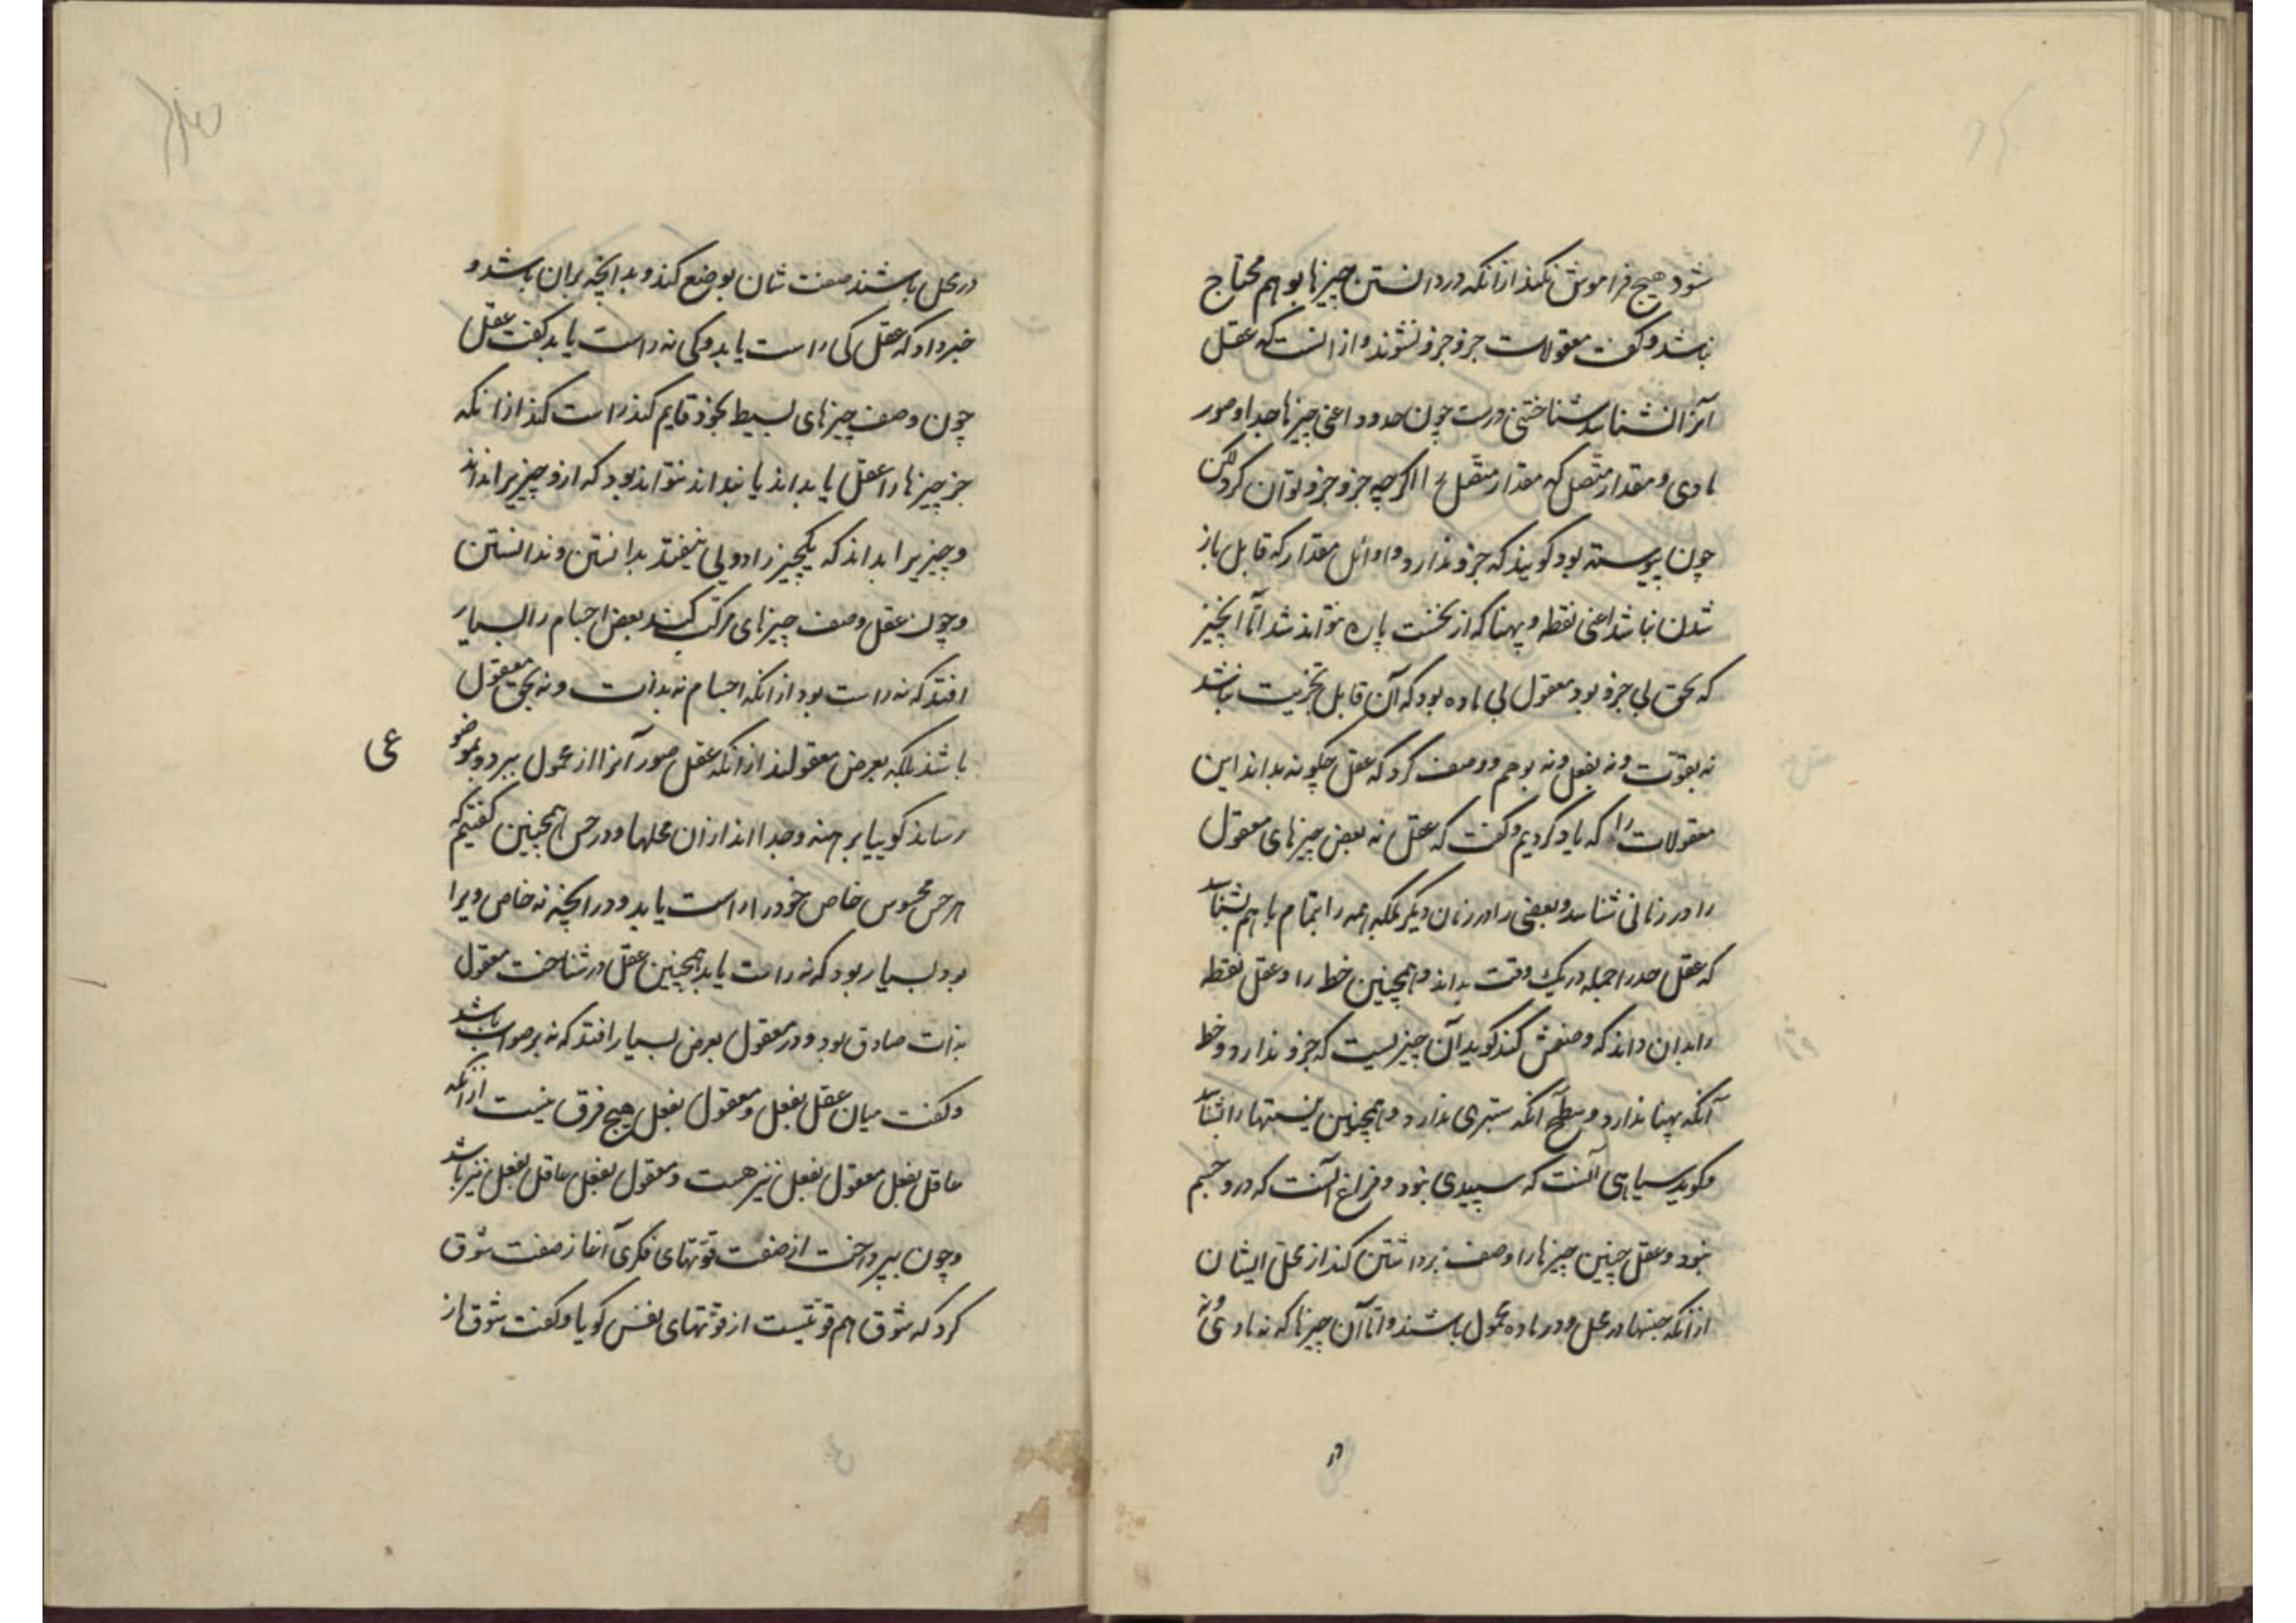 شود هیچ فراموش نکند ازانکه در دانستن چیزها بوهم محتاج
نباشد و گفت معقولات جزو جزو نشوند و از انست که عقل
آنرا بشناسد شناختنی درست چون حدود اعنی چیزها جدا و صور
مادی و مقدار متصل که مقدار متصل را اگرچه جزو جزو توان کرد لکن
چون پیوسته بود گویند که جزو ندارد و اوائل مقدار که قابل باز
شدن نباشد اعنی نقطه و پهنا که از نخست پاره نتواند شد اما انچیز
که بحق بی جزو بود معقول بی ماده بود که آن قابل تجزیت نباشد
نه بقوّت و نه بفعل و نه بوهم و وصف کرد که عقل چگونه بداند این
معقولات را که یاد کردیم و گفت که عقل نه بعض چیزهای معقول
را در زمانی شناسد و بعضی را در زمان دیگر بلکه همه را بتمام با هم بشناسد
که عقل حد را جمله در یک وقت بداند و همچنین خط را و عقل نقطه
را بدان داند که وصفش کند گوید آن چیزیست که جزو ندارد و خط
آنکه پهنا ندارد و سطح آنکه ستبری ندارد و همچنین نیستیها را بشناسد
و گوید سیاهی آنست که سپیدی نبود و فراغ آنست که درو جسم
نبود و عقل چنین چیزها را وصف برداشتن کند از محل ایشان
ازانکه جنسها در محل و در ماده محمول باشند و اما آن چیزها که نه مادی و نه
در
در محل باشند صفت شان بوضع کند و بدانچه بران باشد و
خبر داد که عقل کی راست یابد و کی نه راست یابد گفت عقل
چون وصف چیزهای بسیط بخود قایم کند راست کند ازانکه
جز چیزها را عقل یا بداند یا نداند نتواند بود که ازو چیزی را نداند
و چیزی را بداند که یکچیز را دویی نیفتد بدانستن و ندانستن
و چون عقل وصف چیزهای مرکب کند بعض اجسام را بسیار
افتد که نه راست بود ازانکه اجسام نه بذات و نه بحق معقول
باشند بلکه بعرض معقولند ازانکه عقل صور آنرا از محمول ببرد و بموضو
عی
رساند گوییا برهنه و جدا اند ازان محلها و در حس همچنین گفتیم که
هر حس محسوس خاص خود را راست یابد و در انچه نه خاص ویرا
بود بسیار بود که نه راست یابد همچنین عقل در شناخت معقول
بذات صادق بود و در معقول بعرض بسیار افتد که نه بر صواب باشد
و گفت میان عقل بفعل و معقول بفعل هیچ فرق نیست ازانکه
عاقل بفعل معقول بفعل نیز هست و معقول بفعل عاقل بفعل نیز باشد
و چون بپرداخت از صفت قوّتهای فکری آغاز صفت شوق
کرد که شوق هم قوّتیست از قوّتهای نفس گویا و گفت شوق از